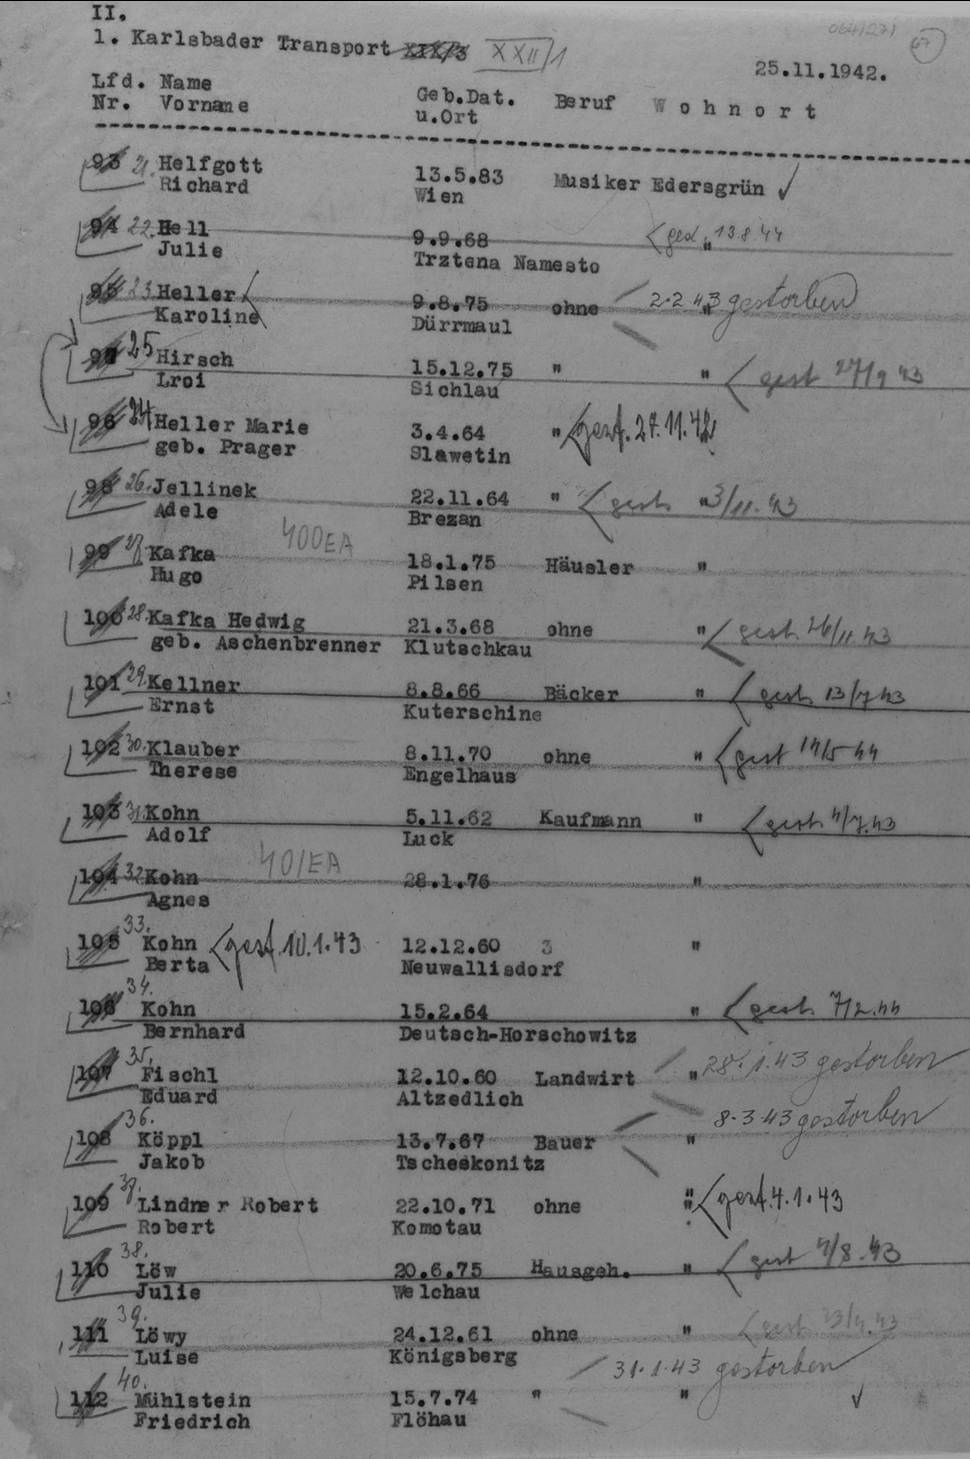 II.
1. Karlsbader Transport XIX/3 XXII/1
25.11.1942.
67
Lfd. Name Geb.Dat. Beruf Wohnort
Nr. Vorname u.Ort
93 21. Helfgott 13.5.83 Musiker Edersgrün
Richard Wien
94 22. Hell 9.9.68 " gest. 13.8.44
Julie Trztena Namesto
95 23. Heller 9.8.75 ohne " 2.2.43 gestorben
Karoline Dürrmaul
97 25 Hirsch 15.12.75 " " gest 27/9 43
Lroi Sichlau
96 24 Heller Marie 3.4.64 " gest. 27.11.42
geb. Prager Slawetin
98 26. Jellinek 22.11.64 " " gest. 3/11.43
Adele Brezan
400EA
99 27 Kafka 18.1.75 Häusler "
Hugo Pilsen
100 28. Kafka Hedwig 21.3.68 ohne " gest. 26/11.43
geb. Aschenbrenner Klutschkau
101 29. Kellner 8.8.66 Bäcker " gest. 13/7 43
Ernst Kuterschine
102 30. Klauber 8.11.70 ohne " gest
Therese Engelhaus
103 31. Kohn 5.11.62 Kaufmann " gest. 4/7.43
Adolf Luck
401EA
104 32. Kohn 28.1.76 "
Agnes
105 33. Kohn gest. 10.1.43 12.12.60 3 "
Berta Neuwallisdorf
106 34. Kohn 15.2.64 " gest. 7/2.44
Bernhard Deutsch-Horschowitz
107 35. Fischl 12.10.60 Landwirt " 28.1.43 gestorben
Eduard Altzedlich
108 36. Köppl 13.7.67 Bauer " 8.3.43 gestorben
Jakob Tscheskonitz
109 37. Lindner Robert 22.10.71 ohne " gest. 4.1.43
Robert Komotau
110 38. Löw 20.6.75 Hausgeh. " gest 4/8.43
Julie Welchau
111 39. Löwy 24.12.61 ohne " gest.
Luise Königsberg
112 40. Mühlstein 15.7.74 " " 31.1.43 gestorben
Friedrich Flöhau